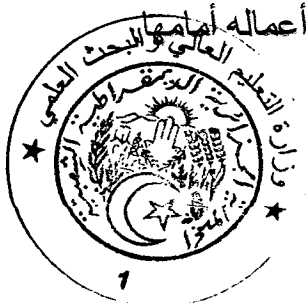 أعماله أمامها
وزارة التعليم العالي والبحث العلمي
الجمهورية الجزائرية الديمقراطية الشعبية
1